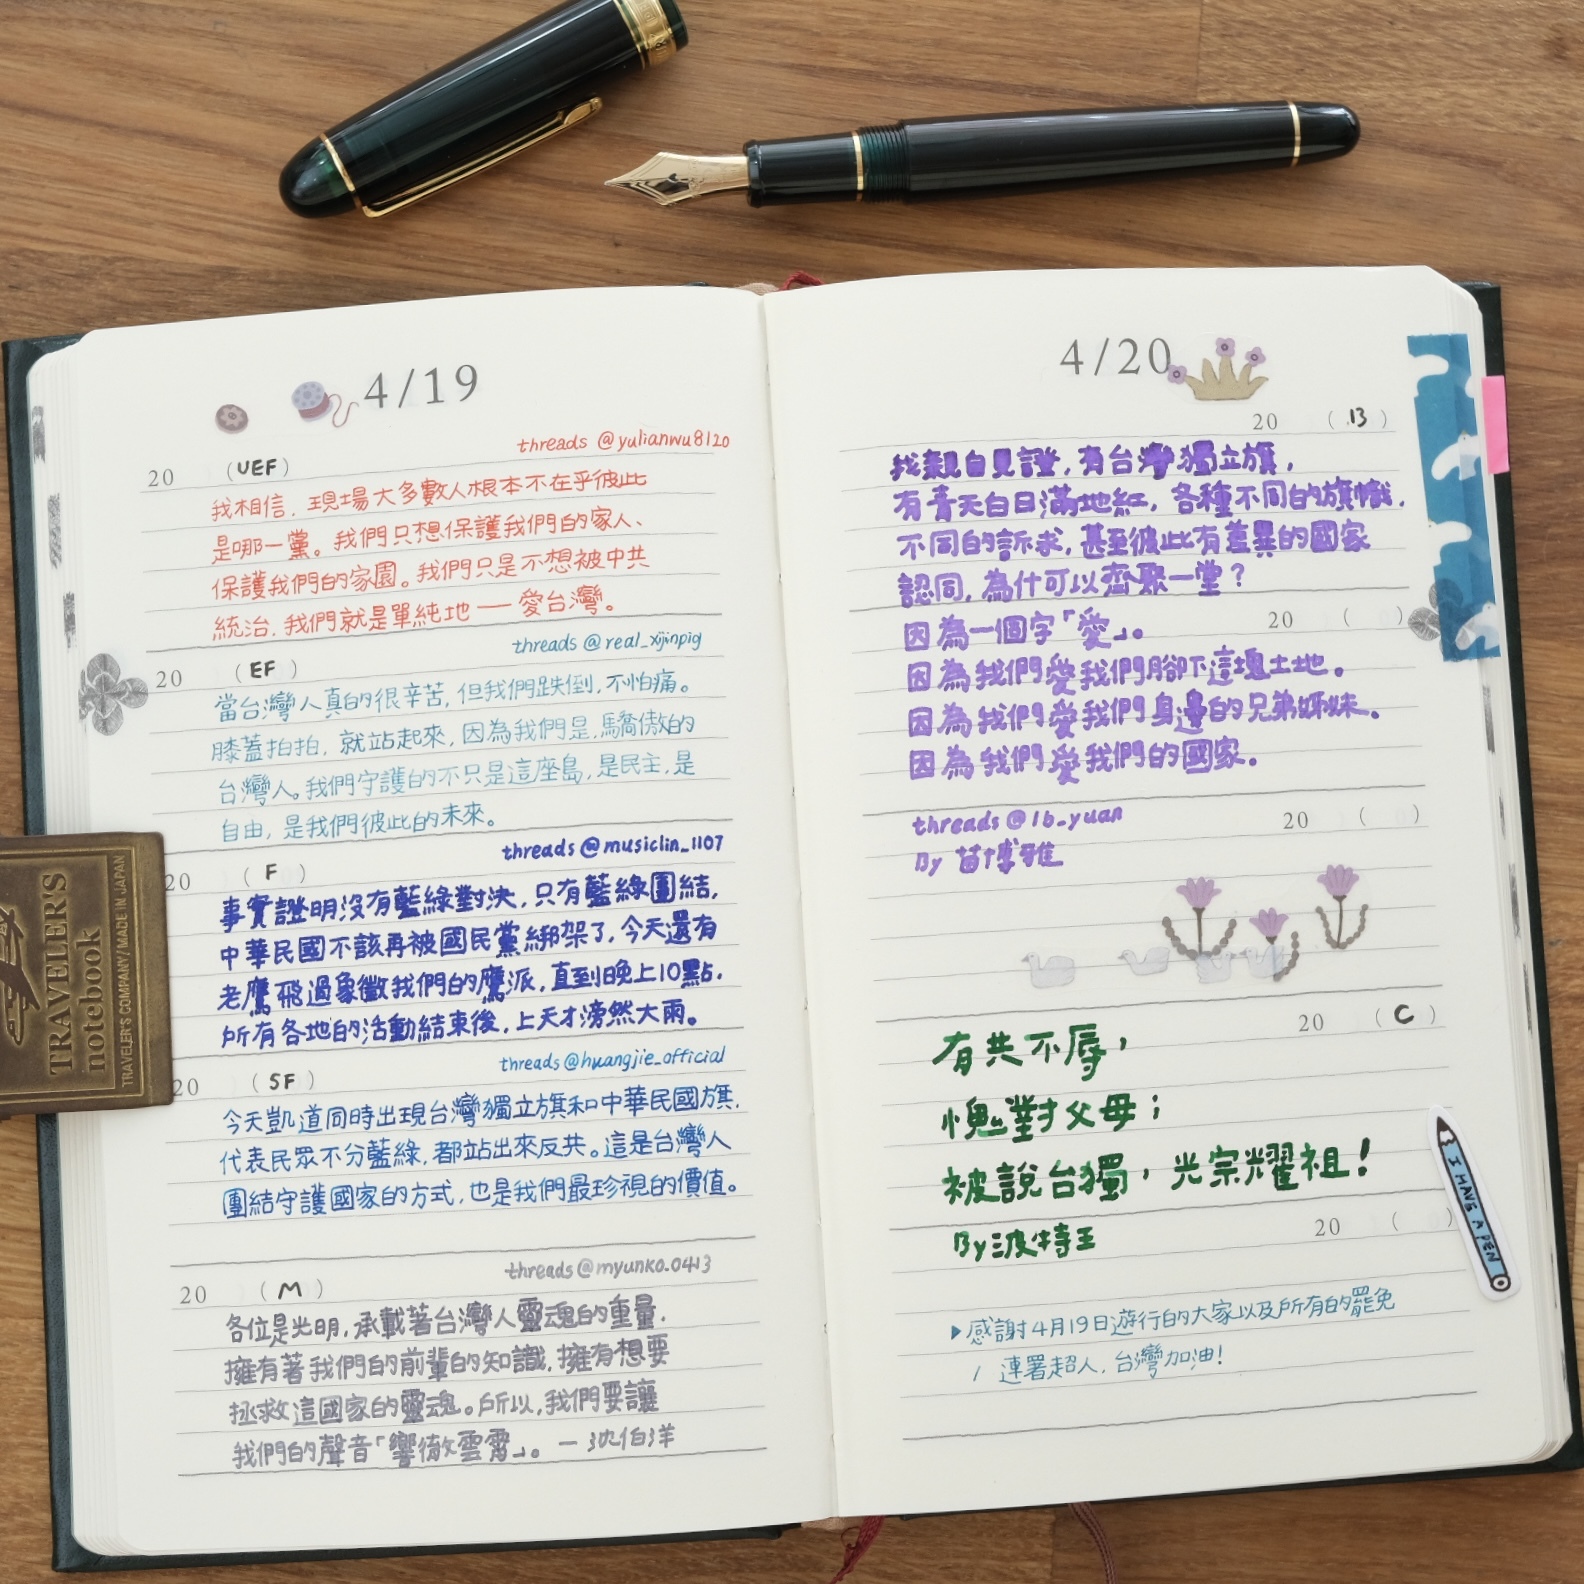 4/19
threads @yulianwu8120
20 (UEF)
我相信，現場大多數人根本不在乎彼此
是哪一黨。我們只想保護我們的家人、
保護我們的家園。我們只是不想被中共
統治，我們就是單純地——愛台灣。
threads @real_xijinpig
20 (EF)
當台灣人真的很辛苦，但我們跌倒，不怕痛。
膝蓋拍拍，就站起來，因為我們是，驕傲的
台灣人。我們守護的不只是這座島，是民主，是
自由，是我們彼此的未來。
threads @musiclin_1107
20 (F)
事實證明沒有藍綠對決，只有藍綠團結，
中華民國不該再被國民黨綁架了，今天還有
老鷹飛過象徵我們的鷹派，直到晚上10點，
所有各地的活動結束後，上天才滂然大雨。
threads @huangjie_official
20 (SF)
今天凱道同時出現台灣獨立旗和中華民國旗，
代表民眾不分藍綠，都站出來反共。這是台灣人
團結守護國家的方式，也是我們最珍視的價值。
threads @myunko.0413
20 (M)
各位是光明，承載著台灣人靈魂的重量，
擁有著我們的前輩的知識，擁有想要
拯救這國家的靈魂。所以，我們要讓
我們的聲音「響徹雲霄」。—沈伯洋
TRAVELER'S
notebook
TRAVELER'S COMPANY/MADE IN JAPAN
4/20
20 (B)
我親自見證，有台灣獨立旗，
有青天白日滿地紅，各種不同的旗幟，
不同的訴求，甚至彼此有差異的國家
認同，為什可以齊聚一堂？
20 ( )
因為一個字「愛」。
因為我們愛我們腳下這塊土地。
因為我們愛我們身邊的兄弟姊妹。
因為我們愛我們的國家。
threads @1b_yuan
20 ( )
By 苗博雅
20 (C)
有共不辱，
愧對父母；
被說台獨，光宗耀祖！
20 ( )
By 波特王
I HAVE A PEN
▶感謝4月19日遊行的大家以及所有的罷免
/ 連署超人，台灣加油！